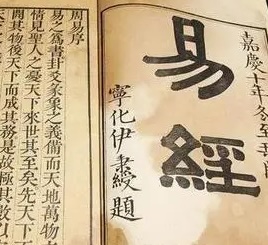 嘉慶十年冬至
易經
寧化伊秉綬題
周易序
易之爲書卦爻彖象之義備而天地萬物
情見聖人之憂天下來世其至矣先天下
開其物後天下而成其務是故極其數以